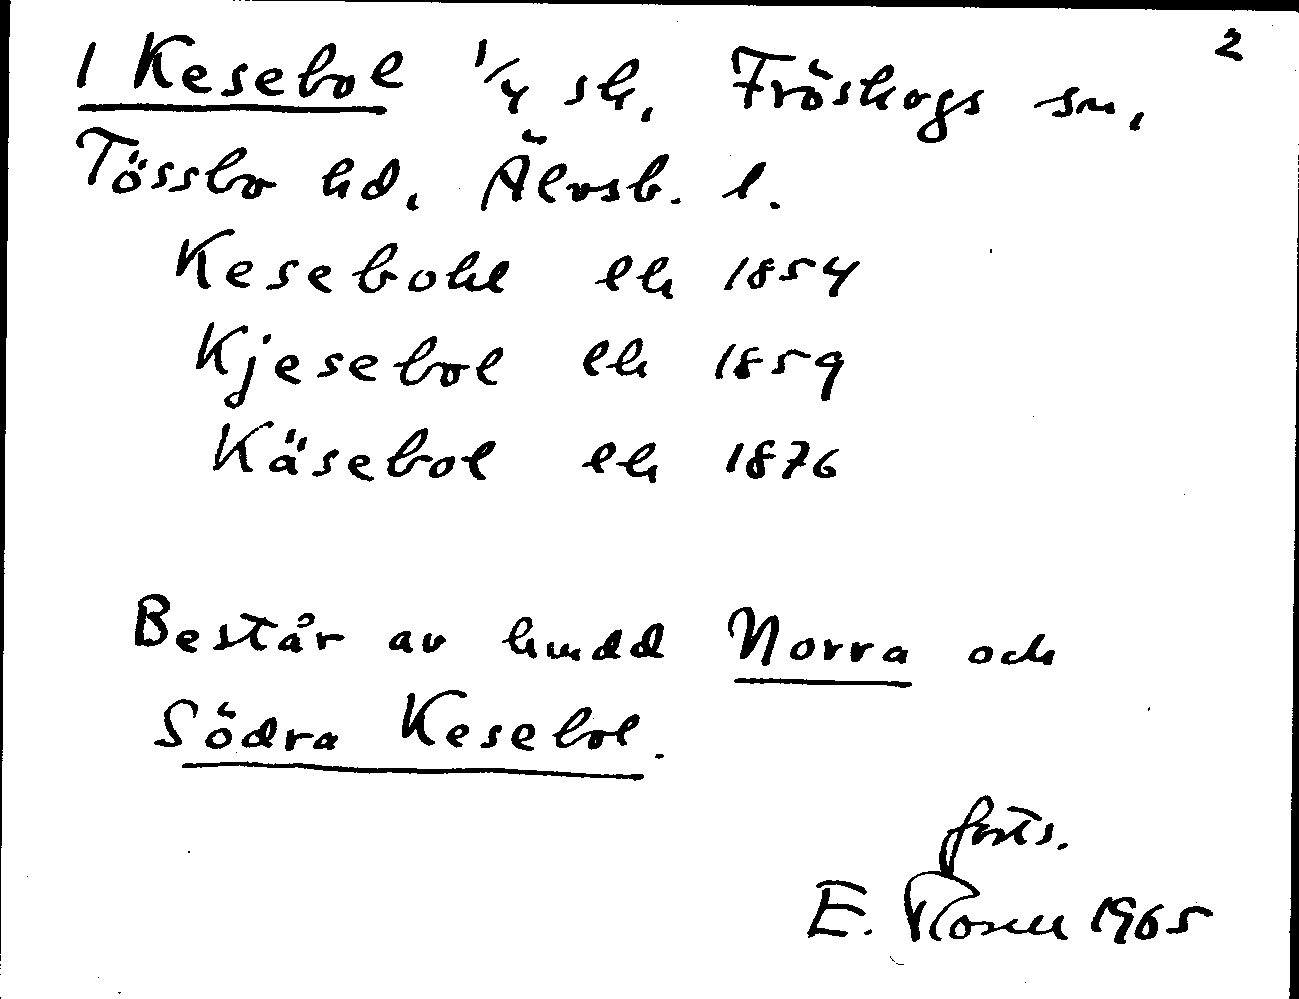 2
1 Kesebol 1/4 sk. Fröskogs sn.
Tössbo hd. Älvsb. l.
Kesebohl lk 1854
Kjesebol lk 1859
Käsebol lk 1876
Består av hmdd Norra och
Södra Kesebol.
forts.
E. Rosell 1965